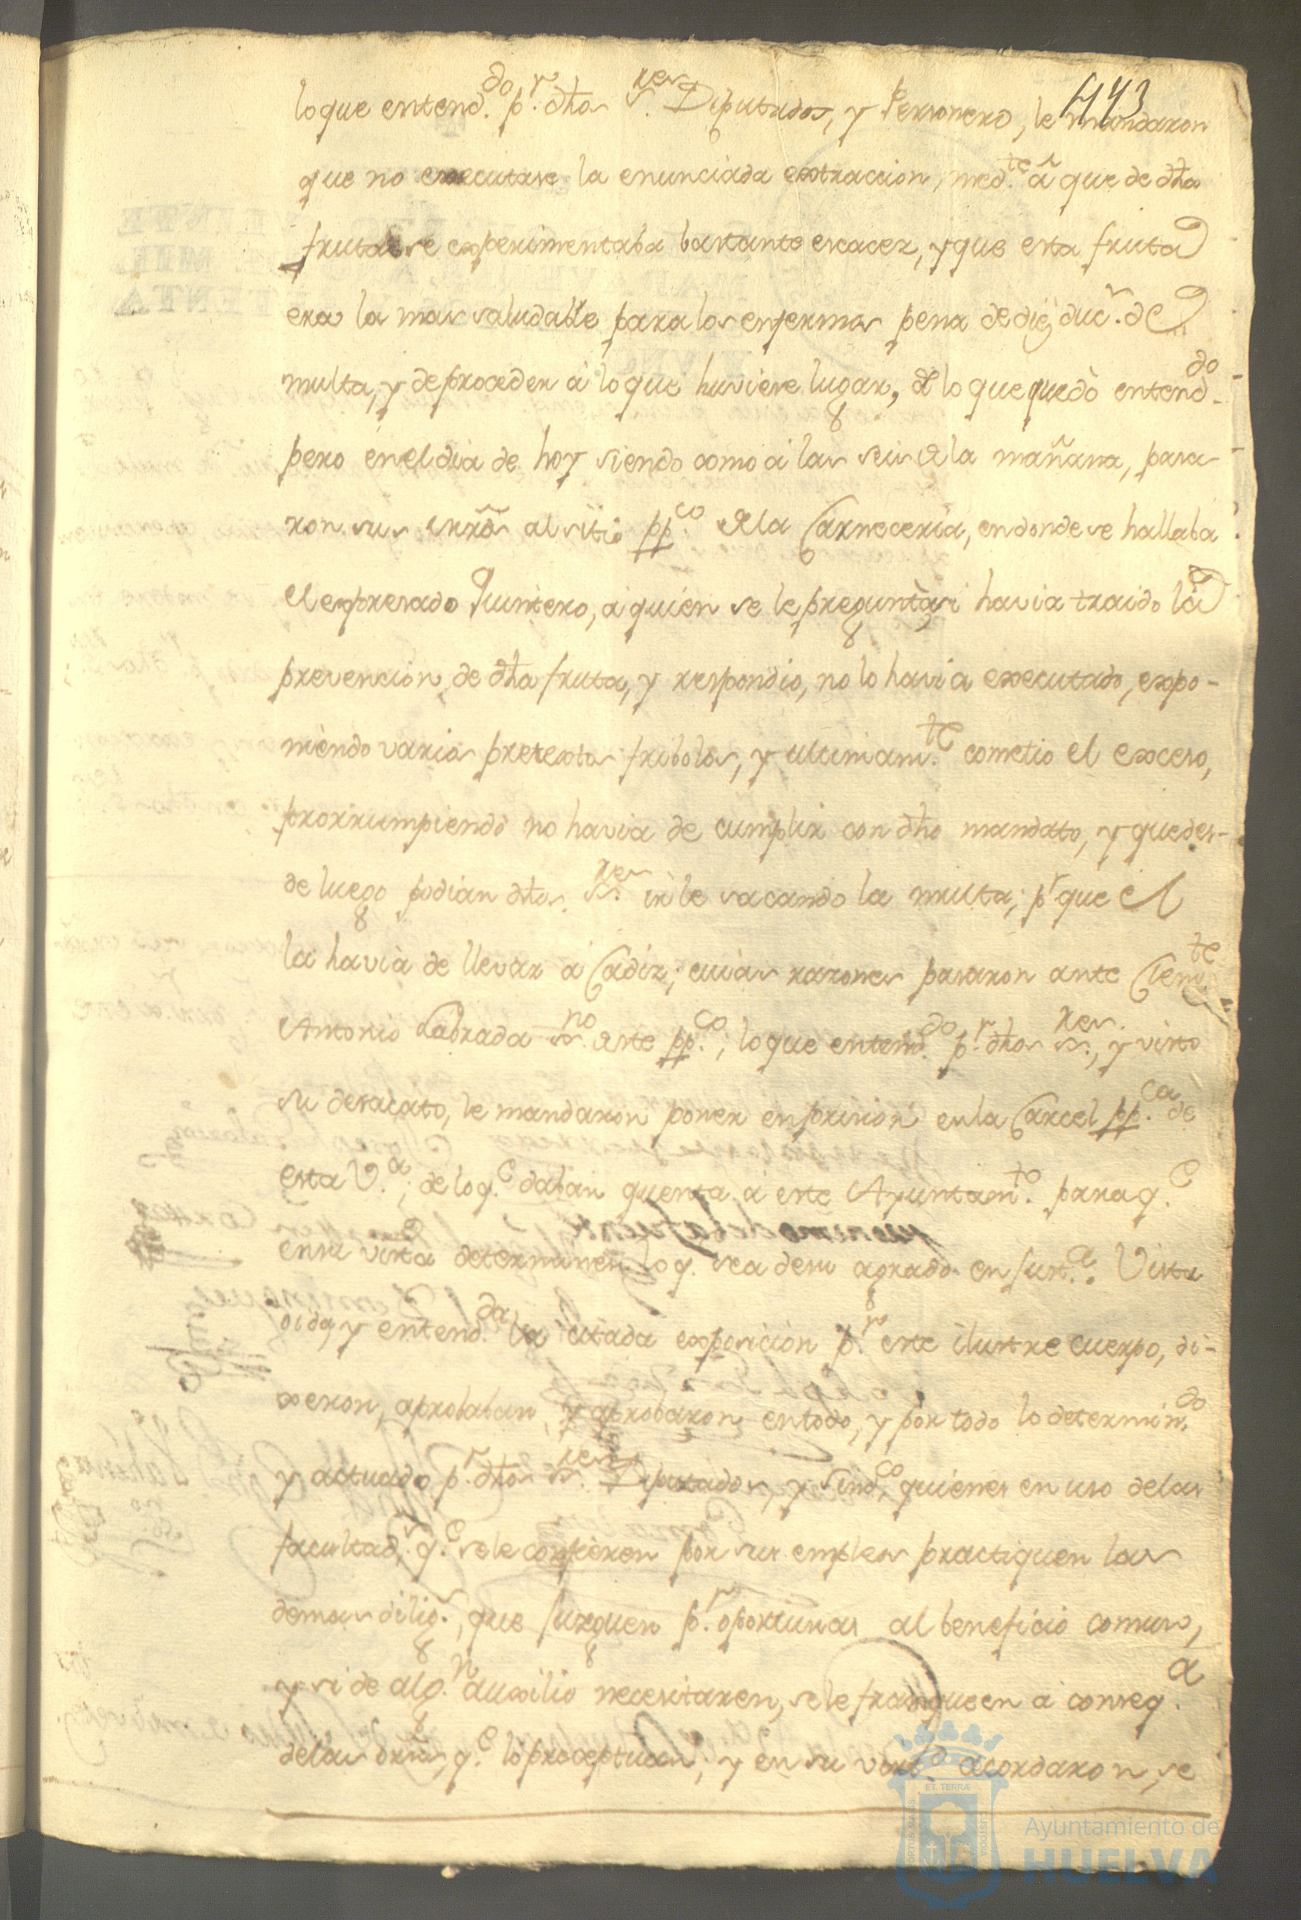 443
lo que entend.do p.r dhos S.res Diputados, y Personero, le mandaron
que no executase la enunciada extraccion, med.te â que de dha
fruta se experimentaba bastante escacez, y que esta fruta
era la mas saludable para los enfermos pena de diez duc.s de
multa, y de proceder a lo que huviere lugar, de lo que quedò entend.do
pero en el dia de hoy siendo como a las seis de la mañana, pasa-
ron sus mrds al sitio pp.co de la Carneceria, en donde se hallaba
el expresado Quintero, a quien se le preguntò si havia traido la
prevencion de dha fruta, y respondio, no lo havia executado, expo-
niendo varios pretextos fribolos, y ultimam.te cometio el exceso,
prorrumpiendo no havia de cumplir con dho mandato, y que des-
de luego podian dhos S.res irle sacando la multa; p.r que el
la havia de llevar a Cadiz; cuias razones pasaron ante Clem.te
Antonio Labrada ss.no deste pp.co; lo que entend.do p.r dhos ss.res, y visto
su desacato, le mandaron poner en prision en la Carcel pp.ca de
esta V.a; de lo q.e daban quenta a este Ayuntam.to para q.e
en su vista determinen lo q.e sea de su agrado en just.a. Vista
oida, y entend.da la citada exposicion p.r este ilustre cuerpo, di-
xeron, aprobaban, y aprobaron en todo, y por todo lo determin.do
y actuado p.r dhos ss.res Diputados, y Sind.co, quienes en uso de las
facultad.s q.e se le confieren por sus empleos practiquen las
demas dilig.s, que juzguen p.r oportunas al beneficio comun,
y si de alg.n auxilio necesitaren, se le franqueen a conseq.a
de las orns, q.e lo preceptuan; y en su virt.d acordaron, se
ET TERRÆ
Ayuntamiento de
HUELVA